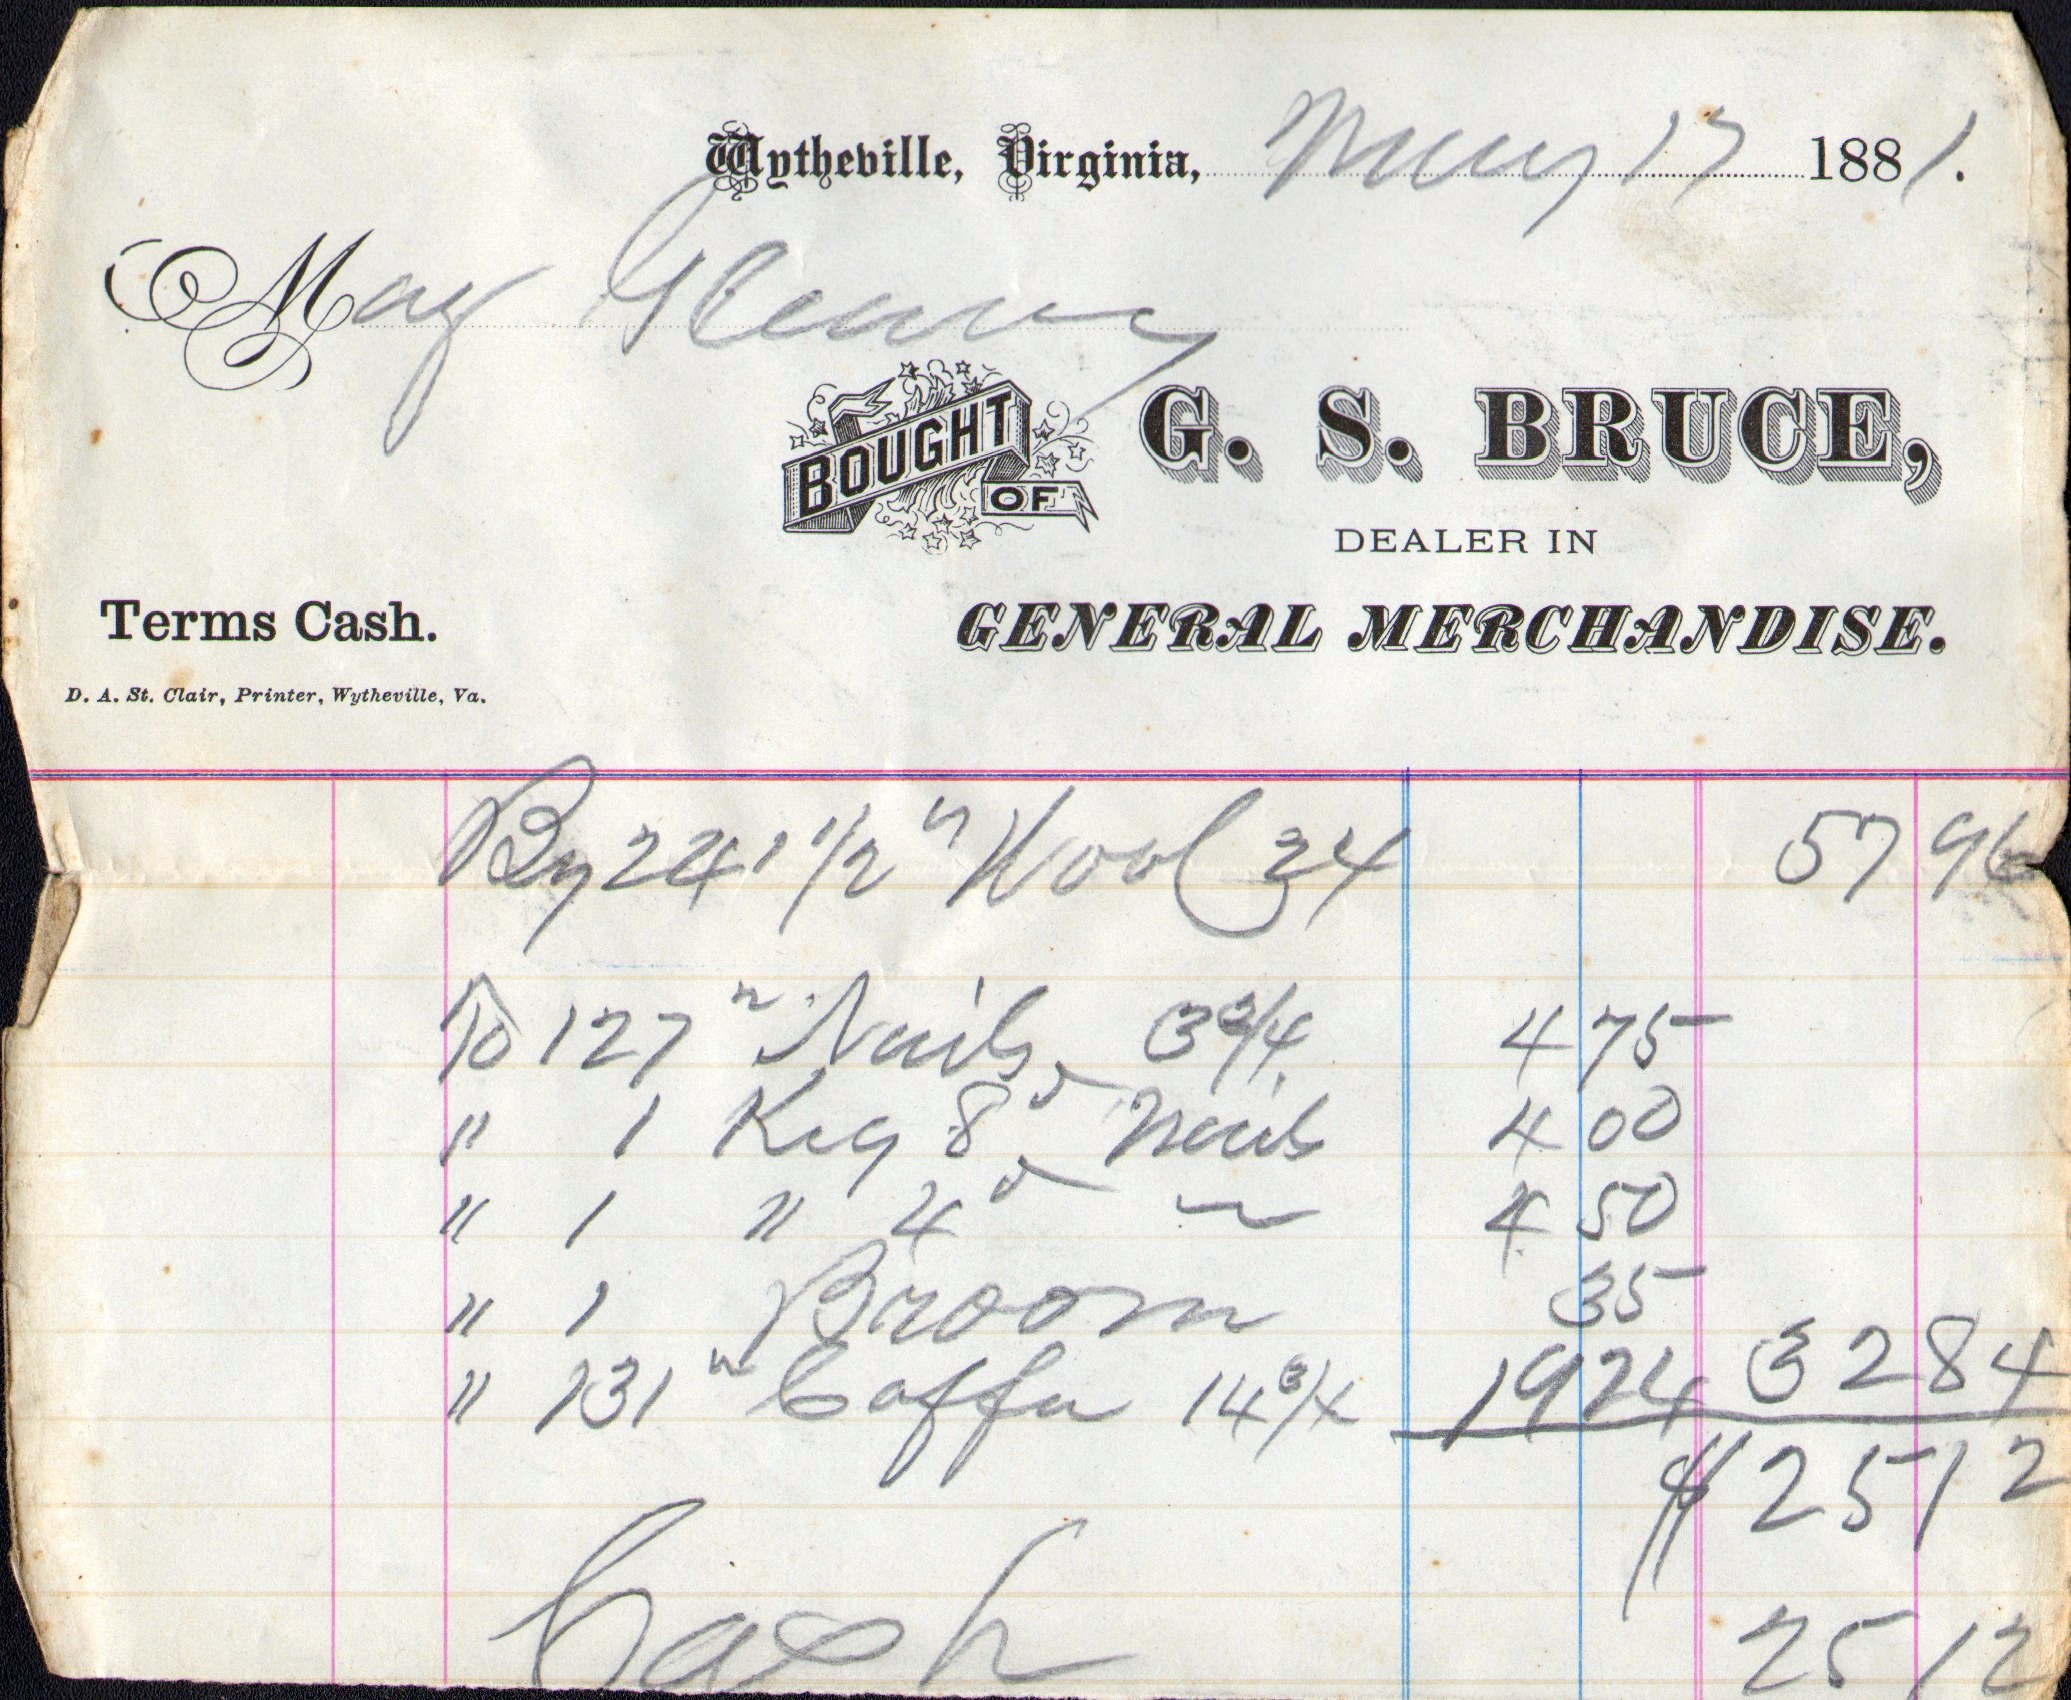 Wytheville, Virginia, May 17 1881.
May
BOUGHT OF G. S. BRUCE,
DEALER IN
Terms Cash. GENERAL MERCHANDISE.
D. A. St. Clair, Printer, Wytheville, Va.
By 241 1/2 " Wool 24 57 96
To 127 " Nails 3 3/4 4 75
" 1 Keg 8d Nails 4 00
" 1 " 4d " 4 50
" 1 Broom 35
" 131 " Coffee 14 3/4 19 24 32 84
$ 25 12
Cash 25 12